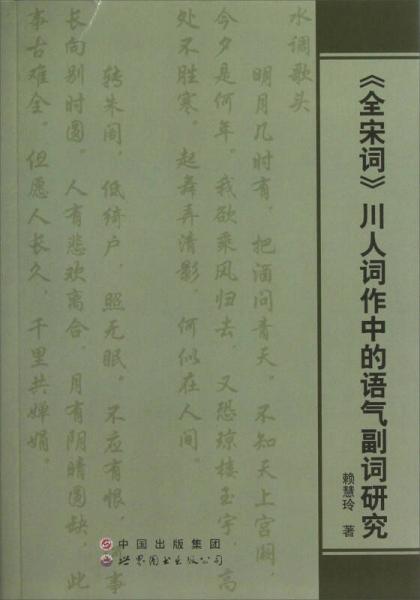 《全宋词》川人词作中的语气副词研究
赖慧玲 著
水调歌头
明月几时有，把酒问青天。不知天上宫阙，
今夕是何年。我欲乘风归去，又恐琼楼玉宇，高
处不胜寒。起舞弄清影，何似在人间。
转朱阁，低绮户，照无眠。不应有恨，事
长向别时圆。人有悲欢离合，月有阴晴圆缺，此
事古难全。但愿人长久，千里共婵娟。
中国出版集团
世界图书出版公司